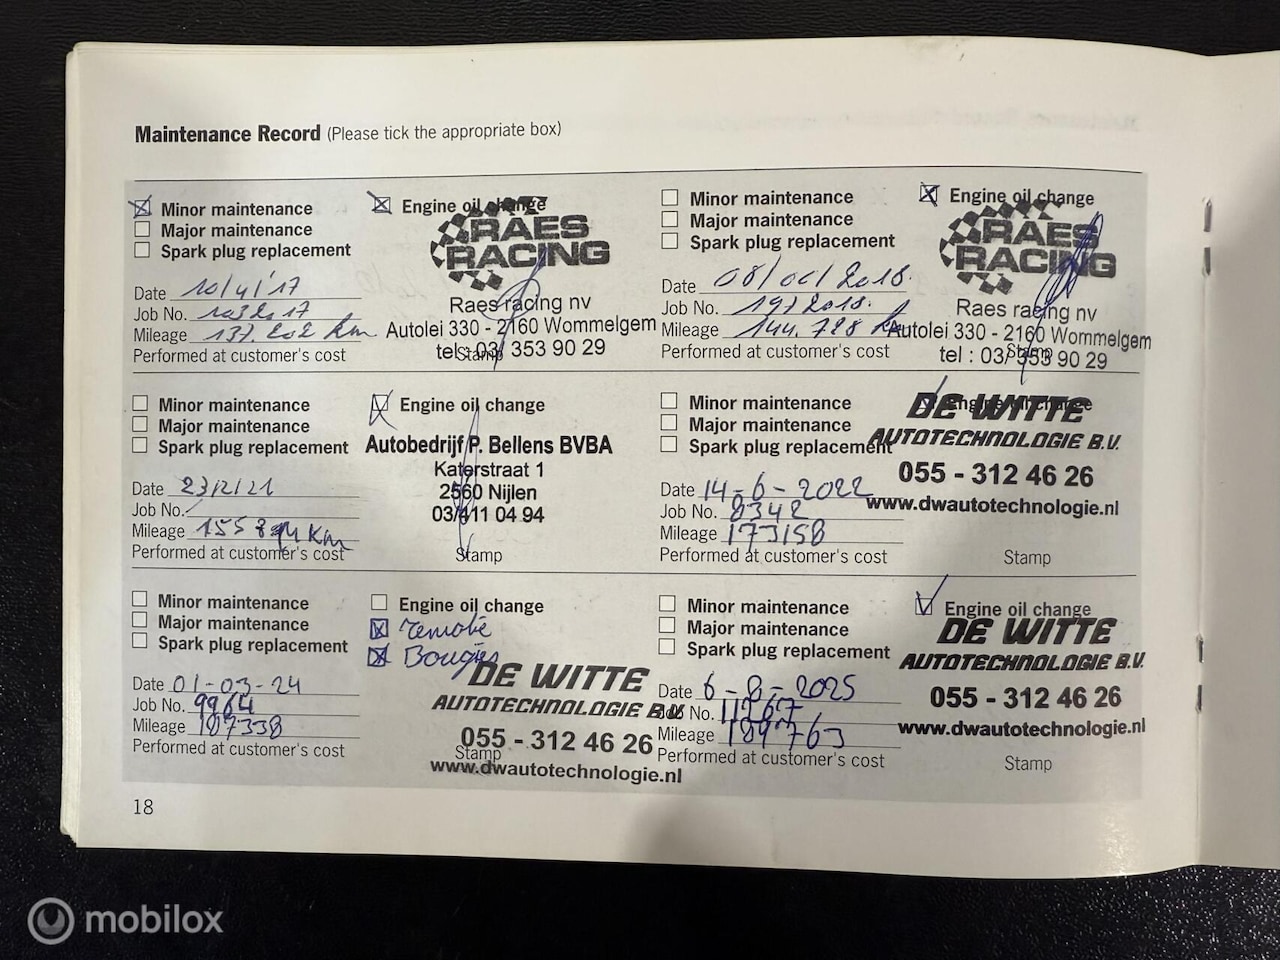 Maintenance Record (Please tick the appropriate box)
Minor maintenance
Major maintenance
Spark plug replacement
Engine oil change
RAES
RACING
Date 10/4/17
Job No.
Mileage 137.202 km
Performed at customer's cost
Raes racing nv
Autolei 330 - 2160 Wommelgem
tel : 03/ 353 90 29
Stamp
Minor maintenance
Major maintenance
Spark plug replacement
Engine oil change
RAES
RACING
Date 08/ /2018
Job No. 1972018
Mileage 144.728 km
Performed at customer's cost
Raes racing nv
Autolei 330 - 2160 Wommelgem
tel : 03/ 353 90 29
Stamp
Minor maintenance
Major maintenance
Spark plug replacement
Engine oil change
Autobedrijf P. Bellens BVBA
Katerstraat 1
2560 Nijlen
03/411 04 94
Date 23/2/21
Job No.
Mileage Km
Performed at customer's cost
Stamp
Minor maintenance
Major maintenance
Spark plug replacement
Engine oil change
DE WITTE
AUTOTECHNOLOGIE B.V.
055 - 312 46 26
www.dwautotechnologie.nl
Date 14-6-2022
Job No. 8342
Mileage 173158
Performed at customer's cost
Stamp
Minor maintenance
Major maintenance
Spark plug replacement
Engine oil change
remolie
Bougies
DE WITTE
AUTOTECHNOLOGIE B.V.
055 - 312 46 26
www.dwautotechnologie.nl
Date 01-03-24
Job No. 9964
Mileage 187338
Performed at customer's cost
Stamp
Minor maintenance
Major maintenance
Spark plug replacement
Engine oil change
DE WITTE
AUTOTECHNOLOGIE B.V.
055 - 312 46 26
www.dwautotechnologie.nl
Date 6-8-2025
Job No. 11267
Mileage 189763
Performed at customer's cost
Stamp
18
mobilox